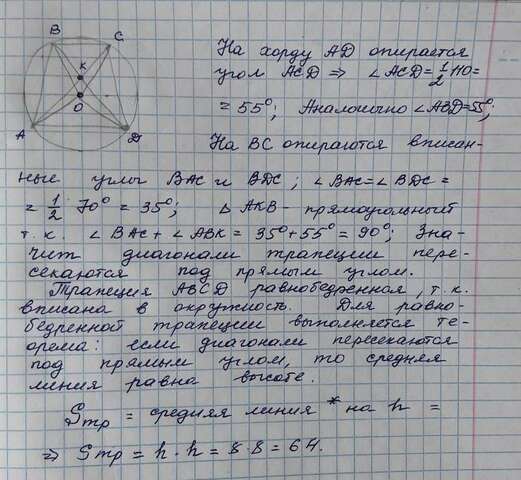 B
C
K
O
A
D
На хорду AD опирается
угол ACD ⇒ ∠ACD = 1/2 110 =
= 55°; Аналогично ∠ABD = 55°;
На BC опираются вписан-
ные углы BAC и BDC; ∠BAC = ∠BDC =
= 1/2 70° = 35°; △ AKB - прямоугольный
т.к. ∠ BAC + ∠ ABK = 35° + 55° = 90°; Зна-
чит диагонали трапеции пере-
секаются под прямым углом.
Трапеция ABCD равнобедренная, т.к.
вписана в окружность. Для равно-
бедренной трапеции выполняется те-
орема: если диагонали пересекаются
под прямым углом, то средняя
линия равна высоте.
Sтр = средняя линия * на h =
⇒ Sтр = h · h = 8 · 8 = 64.